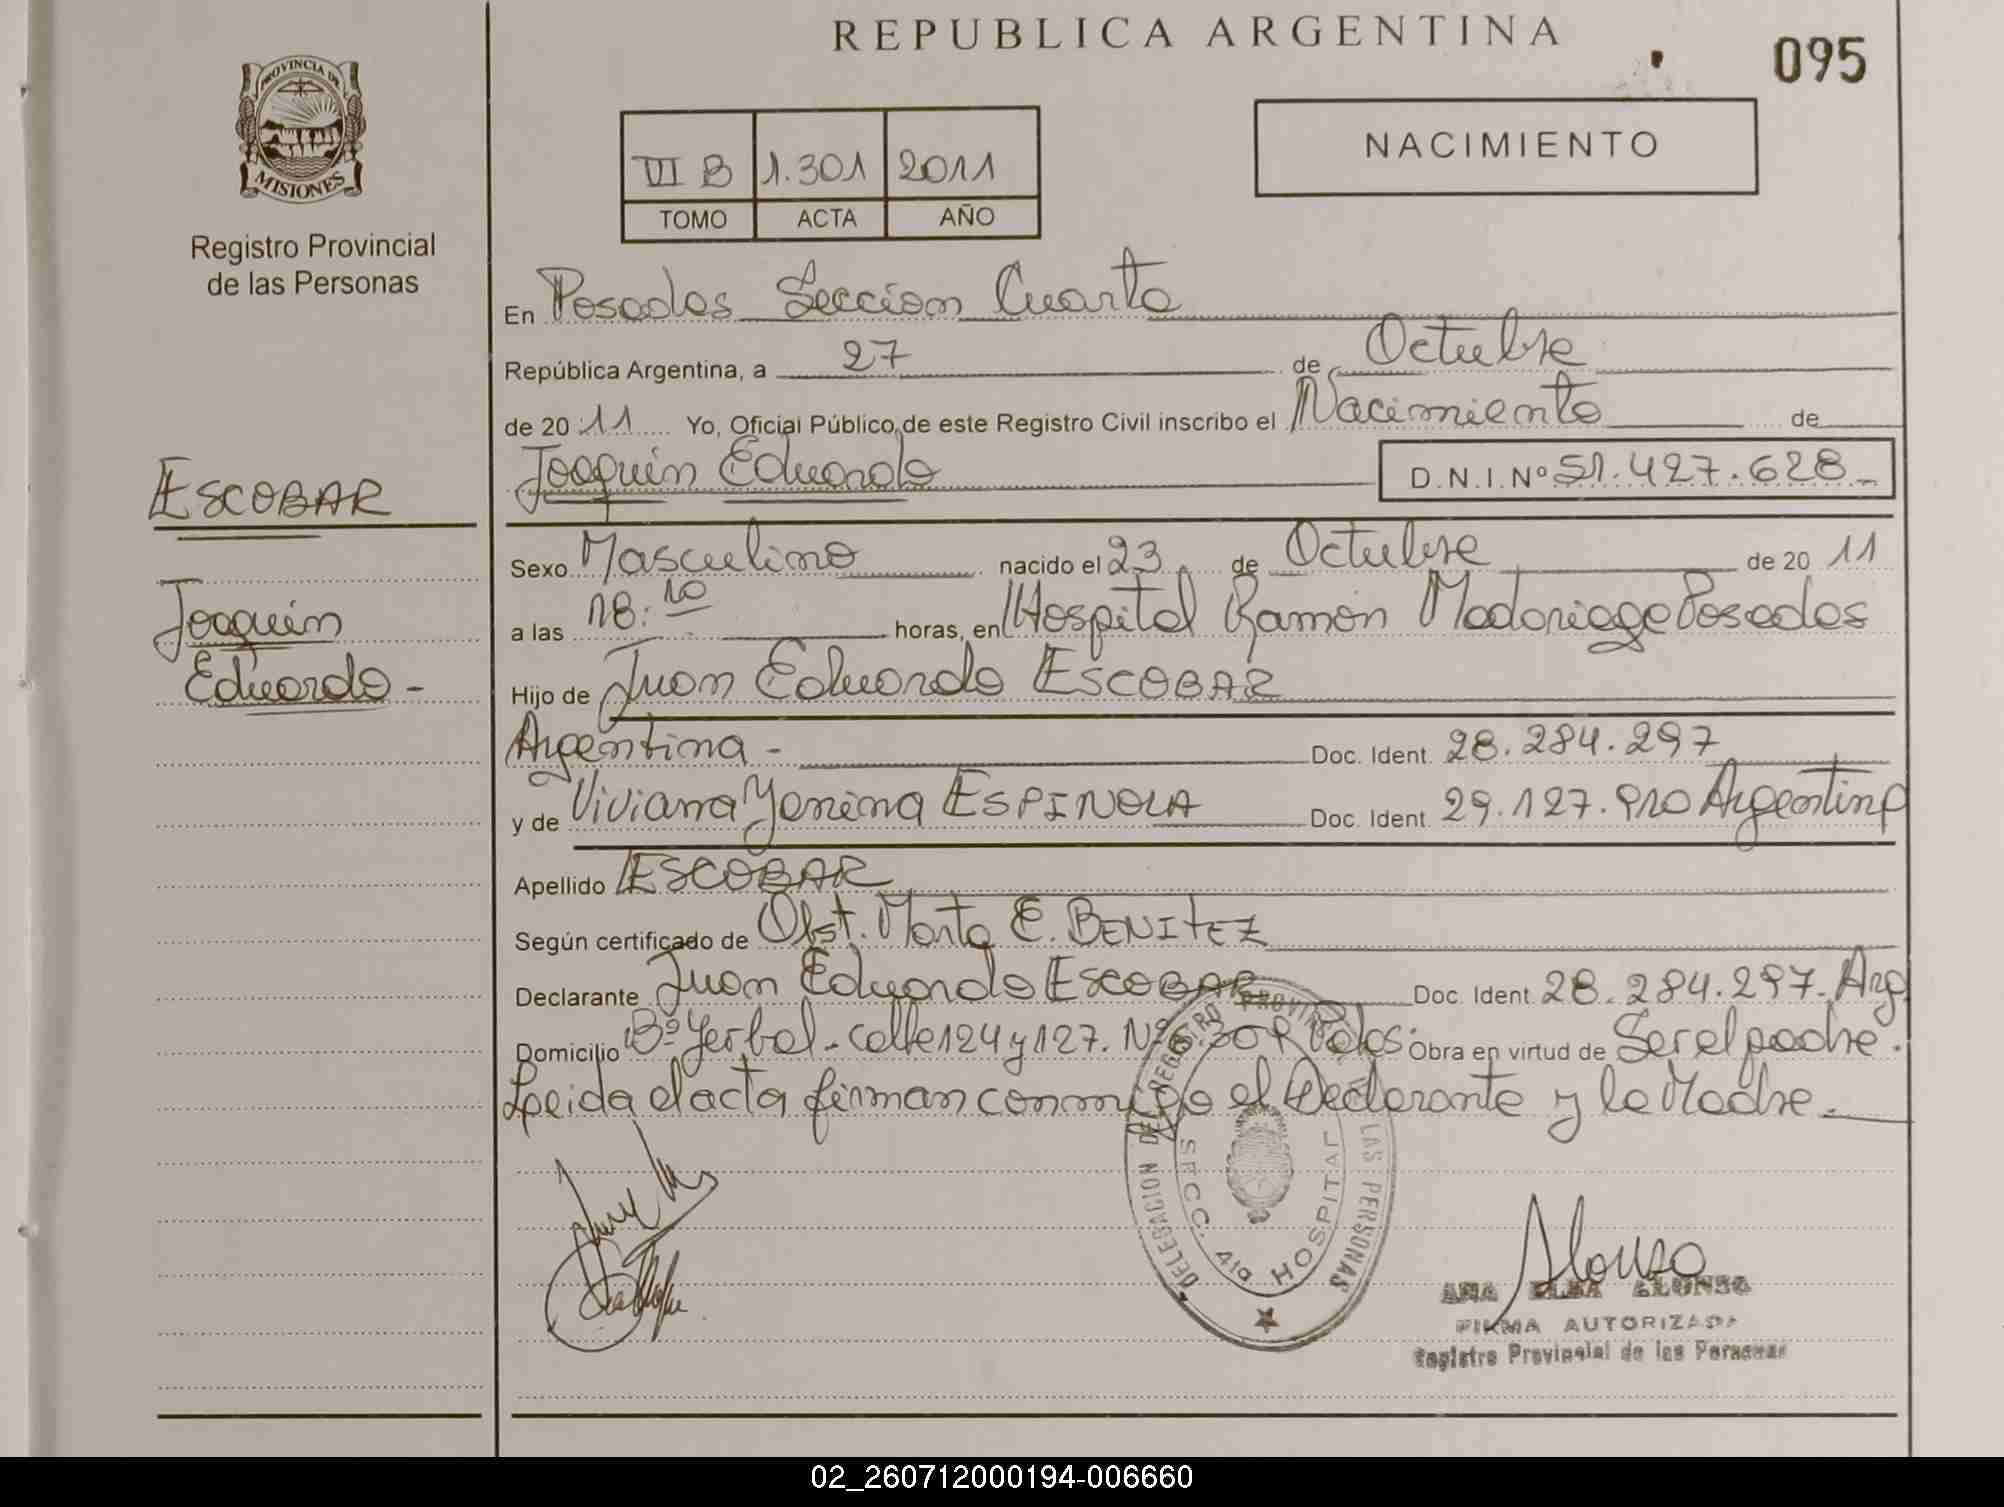 REPUBLICA ARGENTINA
095
PROVINCIA DE
MISIONES
Registro Provincial
de las Personas
VI B 1.301 2011
TOMO ACTA AÑO
NACIMIENTO
En Posadas Seccion Cuarta
República Argentina, a 27 de Octubre
de 20 11 Yo, Oficial Público de este Registro Civil inscribo el Nacimiento de
Joaquín Eduardo D.N.I. Nº 51.427.628
ESCOBAR
Joaquín
Eduardo -
Sexo Masculino nacido el 23 de Octubre de 20 11
a las 18:10 horas, en Hospital Ramón Madariaga Posadas
Hijo de Juan Eduardo ESCOBAR
Argentina - Doc. Ident. 28.284.297
y de Viviana Yenina ESPINOLA Doc. Ident. 29.127.910 Argentina
Apellido ESCOBAR
Según certificado de Obst. Marta E. BENITEZ
Declarante Juan Eduardo ESCOBAR Doc. Ident. 28.284.297. Arg
Domicilio Bº Yerbal - calle 124 y 127. Nº Obra en virtud de Ser el padre.
Leida el acta firman conmigo el Declarante y la Madre.
DELEGACION DEL REGISTRO PROVINCIAL DE LAS PERSONAS
SECC. 4ta HOSPITAL
Alonso
ANA ELBA ALONSO
FIRMA AUTORIZADA
Registro Provincial de las Personas
02_260712000194-006660